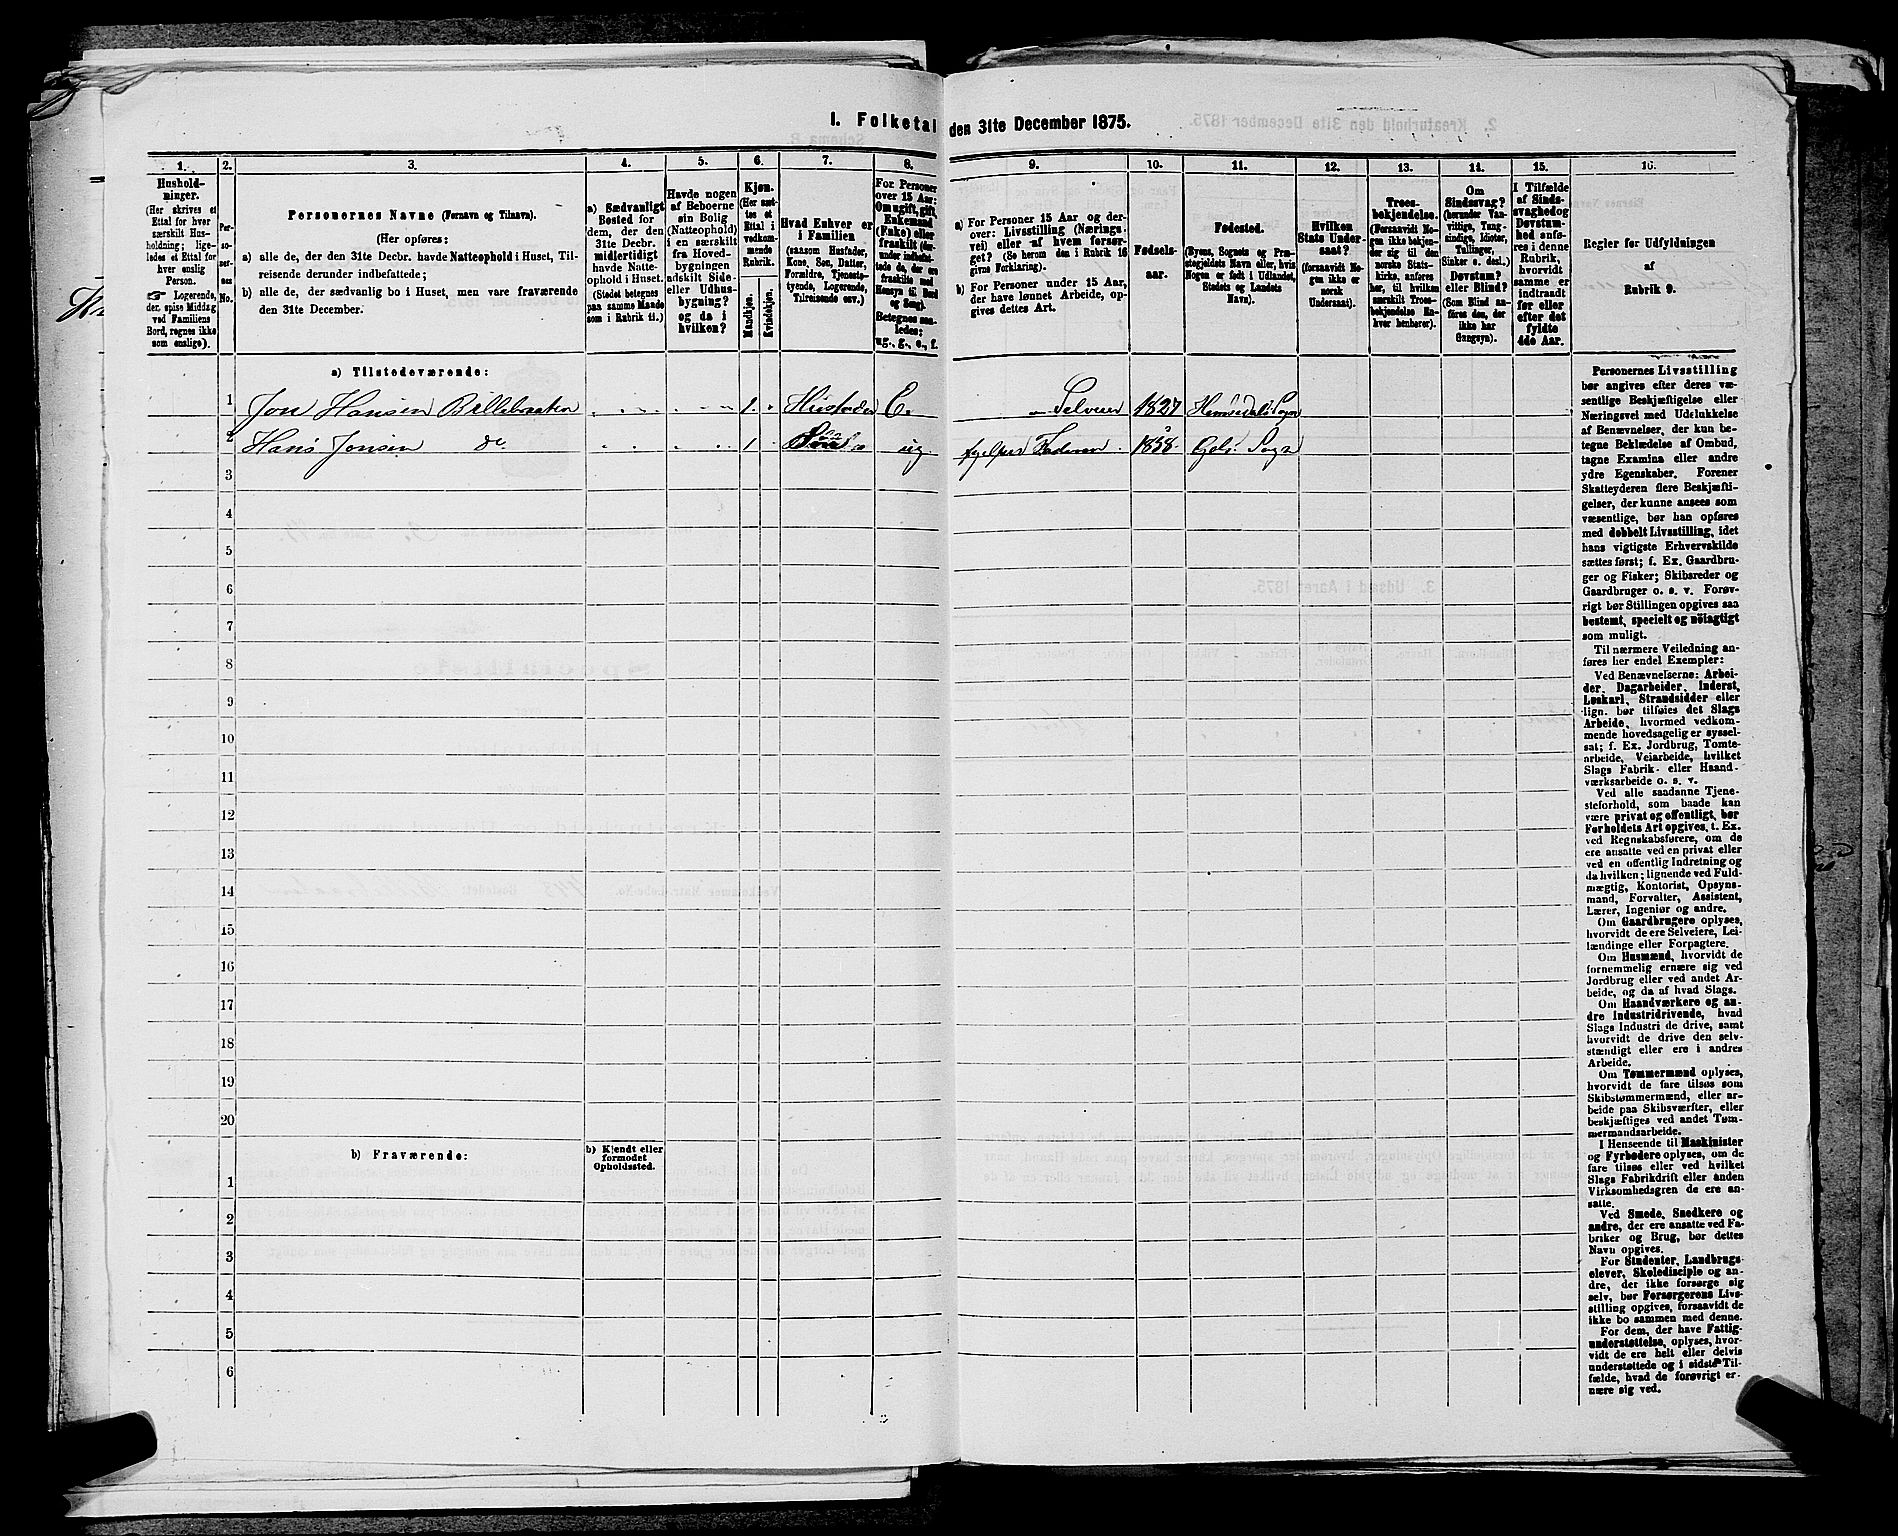 I. Folketal den 31te December 1875.
1. 2. 3. 4. 5. 6. 7. 8. 9. 10. 11. 12. 13. 14. 15. 16.
Hushold-
ninger.
(Her skrives et
Ettal for hver
særskilt Hus-
holdning; lige-
ledes et Ettal for
hver enslig
Person.
☞ Logerende,
der spise Middag
ved Familiens
Bord, regnes ikke
som enslige).
Per-
so-
ner-
nes
No.
Personernes Navne (Fornavn og Tilnavn).
(Her opføres:
a) alle de, der den 31te Decbr. havde Natteophold i Huset, Til-
reisende derunder indbefattede;
b) alle de, der sædvanlig bo i Huset, men vare fraværende
den 31te December.
a) Sædvanligt
Bosted for
dem, der den
31te Decbr.
midlertidigt
havde Natte-
ophold i Huset.
(Stedet betegnes
paa samme Maade
som i Rubrik 11.)
Havde nogen
af Beboerne
sin Bolig
(Natteophold)
i en særskilt
fra Hoved-
bygningen
adskilt Side-
eller Udhus-
bygning?
og da i
hvilken?
Kjøn.
(Her sæt-
tes et
Ettal i
vedkom-
mende
Rubrik.
Mandkjøn.
Kvindekjøn.
Hvad Enhver er
i Familien
(saasom Husfader,
Kone, Søn, Datter,
Forældre, Tjeneste-
tyende, Logerende,
Tilreisende osv.)
For Personer
over 15 Aar:
Om ugift, gift,
Enkemand
(Enke) eller
fraskilt (der-
under indbefat-
tede de, der ere
fraskilte med
Hensyn til Bord
og Seng).
Betegnes saa-
ledes:
ug., g., e., f.
a) For Personer 15 Aar og der-
over: Livsstilling (Nærings-
vei) eller af hvem forsør-
get? (Se herom den i Rubrik 16
givne Forklaring).
b) For Personer under 15 Aar,
der have lønnet Arbeide, op-
gives dettes Art.
Fødsels-
aar.
Fødested.
(Byens, Sognets og Præ-
stegjeldets Navn eller, hvis
Nogen er født i Udlandet,
Stedets og Landets
Navn).
Hvilken
Stats Under-
saat?
(forsaavidt No-
gen ikke er
norsk
Undersaat).
Troes-
bekjendelse.
(Forsaavidt No-
gen ikke bekjen-
der sig til den
norske Stats-
kirke, anføres
her, til hvilken
særskilt Troes-
bekjendelse En-
hver henhører).
Om
Sindssvag?
(herunder Van-
vittige, Tung-
sindige, Idioter,
Tullinger,
Sinker o. desl.)
Døvstum?
eller Blind?
(Som Blind an-
føres den, der
ikke har
Gangsyn).
I Tilfælde
af Sinds-
svaghed og
Døvstum-
hed anfø-
res i denne
Rubrik,
hvorvidt
samme er
indtraadt
før eller
efter det
fyldte
4de Aar.
Regler for Udfyldningen
af
Rubrik 9.
a) Tilstedeværende:
1 Jon Hansen Billebraaten 1. Husfader E. Selveier 1827 Hemsedals Sogn
2 Hans Jonsen do 1 Søn ug. hjelper Faderen 1858 Gols Sogn
3
4
5
6
7
8
9
10
11
12
13
14
15
16
17
18
19
20
b) Fraværende:
b) Kjendt eller
formodet
Opholdssted.
1
2
3
4
5
6
Personernes Livsstilling
bør angives efter deres væ-
sentlige Beskjæftigelse eller
Næringsvei med Udelukkelse
af Benævnelser, der kun be-
tegne Beklædelse af Ombud,
tagne Examina eller andre
ydre Egenskaber. Forener
Skatteyderen flere Beskjæfti-
gelser, der kunne ansees som
væsentlige, bør han opføres
med dobbelt Livsstilling, idet
hans vigtigste Erhvervskilde
sættes først; f. Ex. Gaardbru-
ger og Fisker; Skibsreder og
Gaardbruger o. s. v. Forøv-
rigt bør Stillingen opgives saa
bestemt, specielt og nöiagtigt
som muligt.
Til nærmere Veiledning an-
føres her endel Exempler:
Ved Benævnelserne: Arbei-
der, Dagarbeider, Inderst,
Løskarl, Strandsidder eller
lign. bør tilføies det Slags
Arbeide, hvormed vedkom-
mende hovedsagelig er syssel-
sat; f. Ex. Jordbrug, Tomte-
arbeide, Veiarbeide, hvilket
Slags Fabrik- eller Haand-
værksarbeide o. s. v.
Ved alle saadanne Tjene-
steforhold, som baade kan
være privat og offentligt, bør
Forholdets Art opgives, t. Ex.
ved Regnskabsførere, om de
ere ansatte ved en privat eller
ved en offentlig Indretning og
da hvilken; lignende ved Fuld-
mægtig, Kontorist, Opsyns-
mand, Forvalter, Assistent,
Lærer, Ingeniør og andre.
Om Gaardbrugere oplyses,
hvorvidt de ere Selveiere, Lei-
lændinge eller Forpagtere.
Om Husmænd, hvorvidt de
fornemmelig ernære sig ved
Jordbrug eller ved andet Ar-
beide, og da af hvad Slags.
Om Haandværkere og an-
dre Industridrivende, hvad
Slags Industri de drive, samt
hvorvidt de drive den selv-
stændigt eller ere i andres
Arbeide.
Om Tømmermænd oplyses,
hvorvidt de fare tilsøs som
Skibstømmermænd, eller ar-
beide paa Skibsværfter, eller
beskjæftiges ved andet Tøm-
mermandsarbeide.
I Henseende til Maskinister
og Fyrbødere oplyses, om de
fare tilsøs eller ved hvilket
Slags Fabrikdrift eller anden
Virksomhedsgren de ere an-
satte.
Ved Smede, Snedkere og
andre, der ere ansatte ved Fa-
briker og Brug, bør dettes
Navn opgives.
For Studenter, Landbrugs-
elever, Skoledisciple og an-
dre, der ikke forsørge sig
selv, bør Forsørgerens Livs-
stilling opgives, forsaavidt de
ikke bo sammen med denne.
For dem, der have Fattig-
understøttelse, oplyses, hvor-
vidt de ere helt eller delvis
understøttede og i sidste Til-
fælde, hvad de forøvrigt er-
nære sig ved.